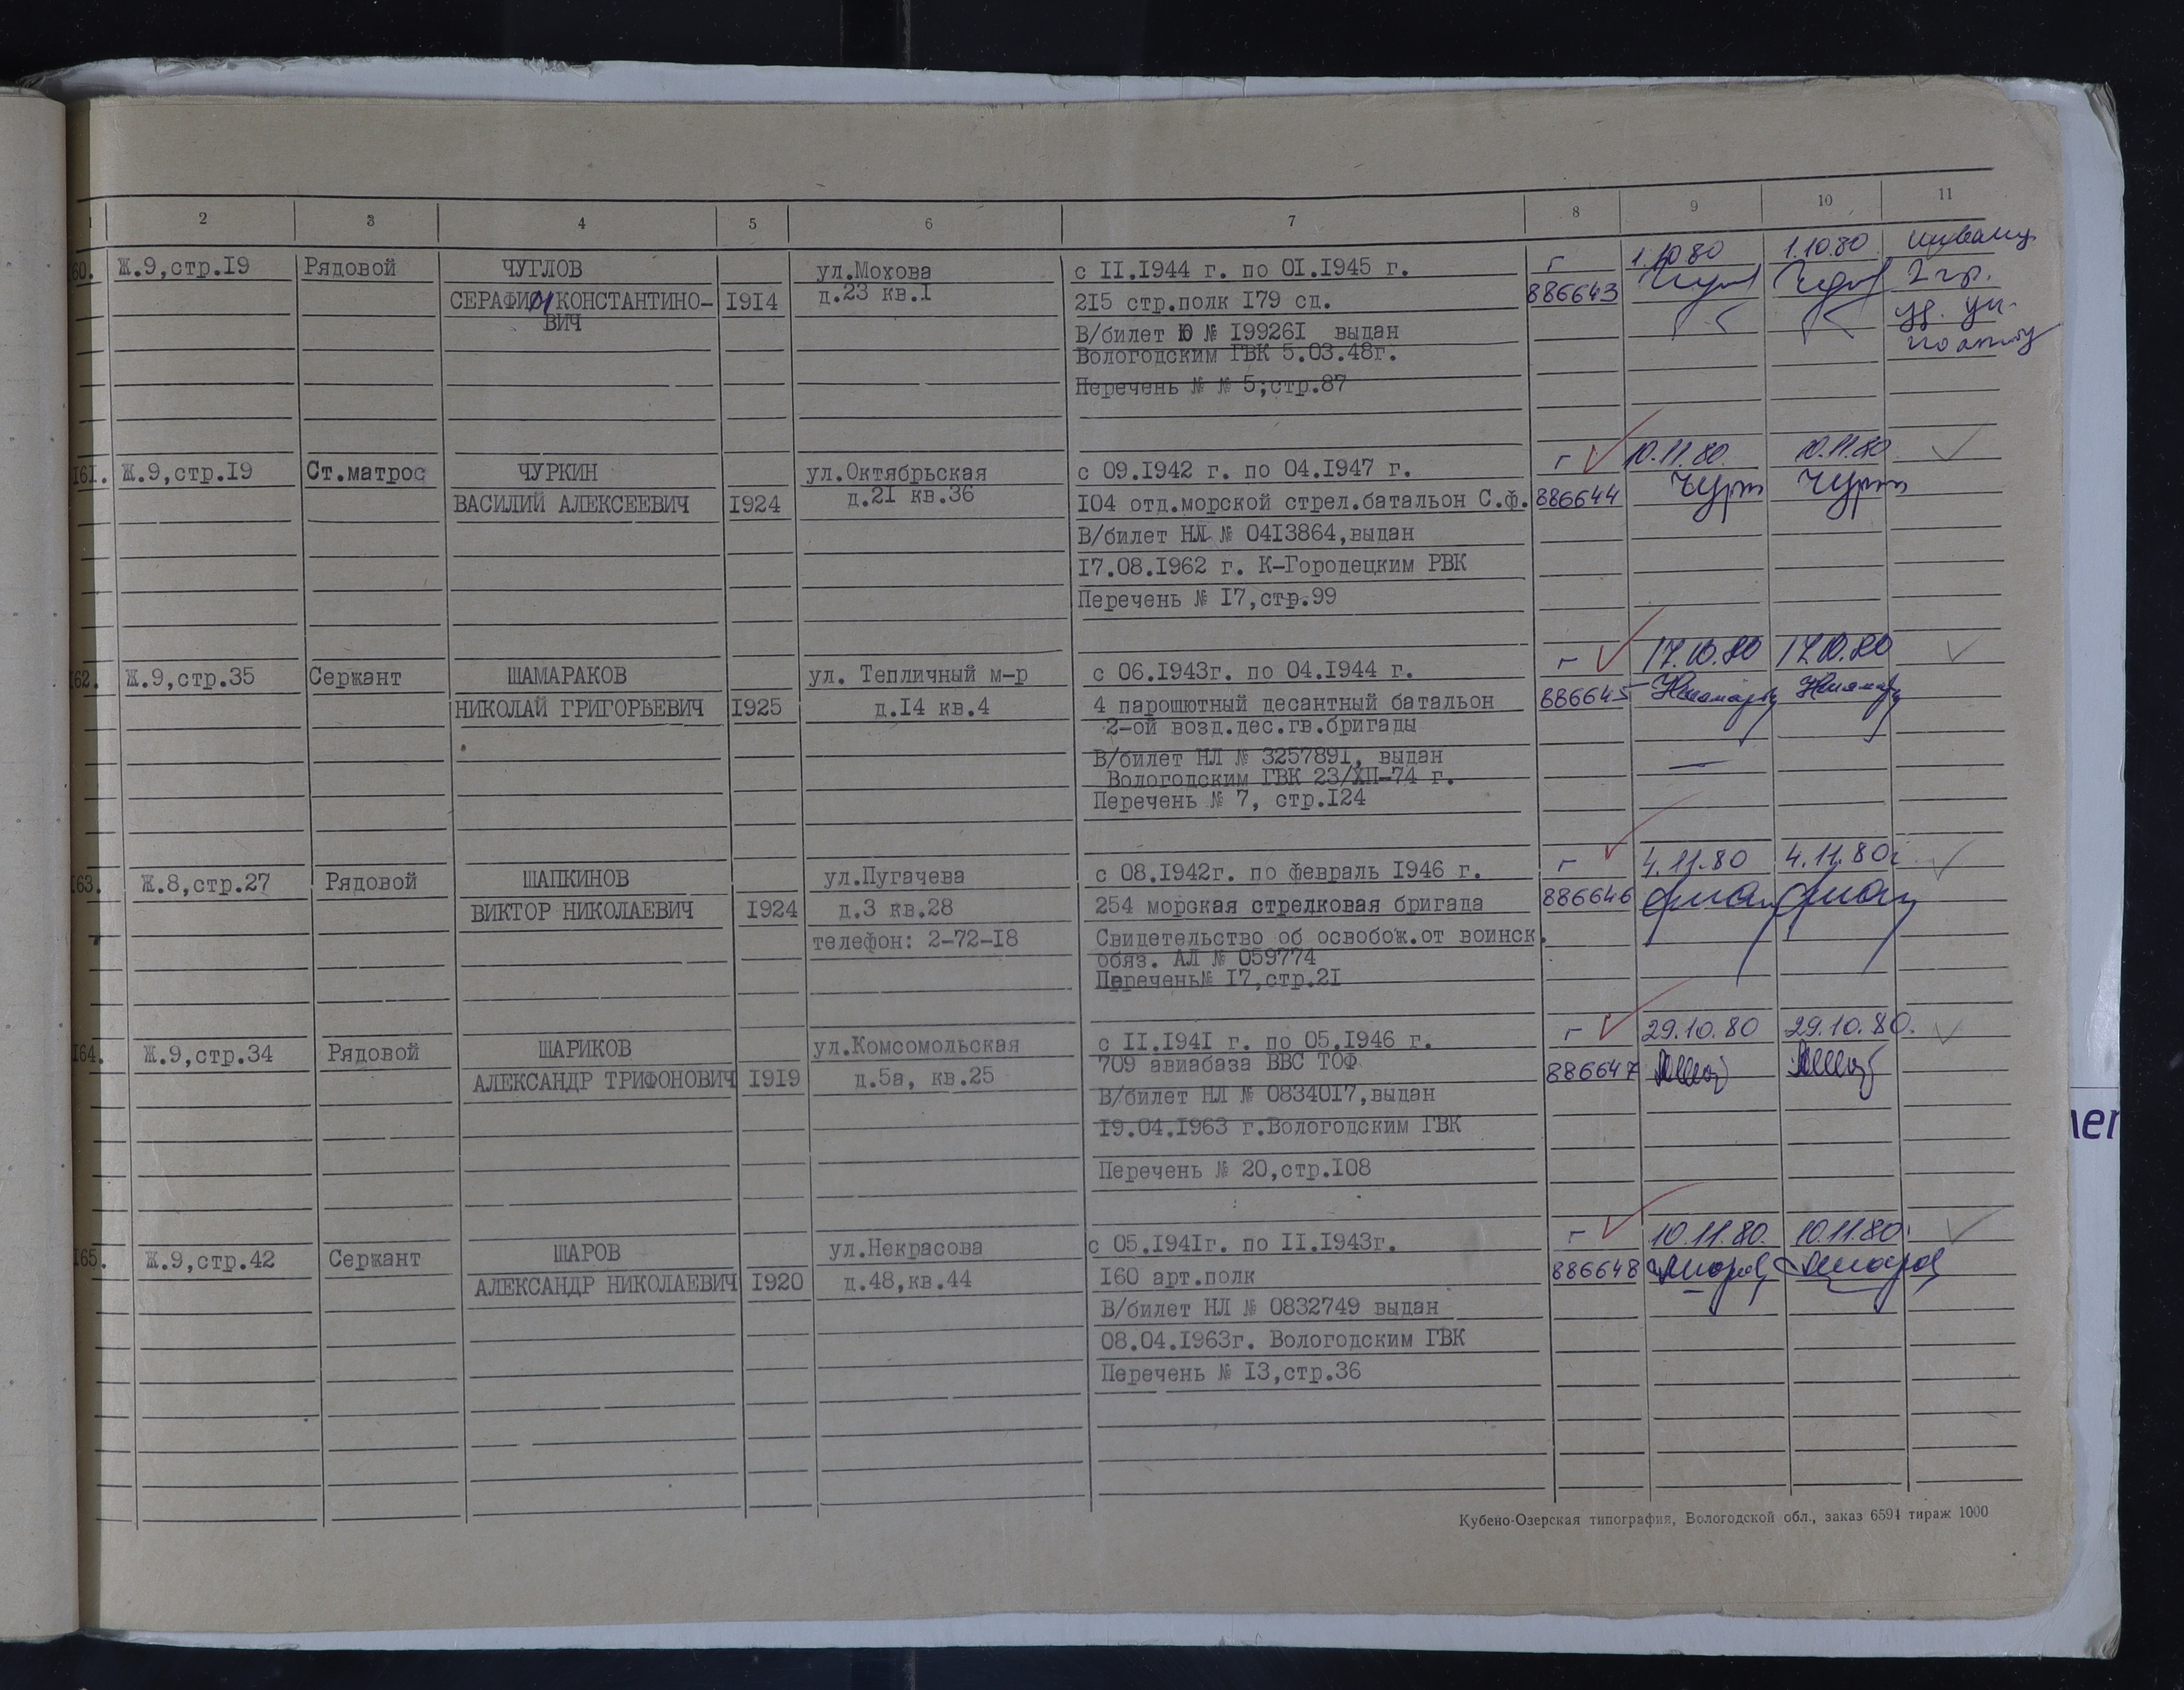 1 2 3 4 5 6 7 8 9 10 11
60. Ж.9,стр.I9 Рядовой ЧУГЛОВ ул.Мохова с II.I944 г. по 0I.I945 г. г 1.10.80 1.10.80
СЕРАФИМ КОНСТАНТИНО- I9I4 д.23 кв.I 2I5 стр.полк I79 сд. 886643 2 гр.
ВИЧ
В/билет Ю № I9926I выдан
Вологодским ГВК 5.03.48г.
Перечень № № 5;стр.87
I6I. Ж.9,стр.I9 Ст.матрос ЧУРКИН ул.Октябрьская с 09.I942 г. по 04.I947 г. г 10.11.80 10.11.80
ВАСИЛИЙ АЛЕКСЕЕВИЧ I924 д.2I кв.36 I04 отд.морской стрел.батальон С.ф. 886644
В/билет НЛ № 04I3864,выдан
I7.08.I962 г. К-Городецким РВК
Перечень № I7,стр.99
I62. Ж.9,стр.35 Сержант ШАМАРАКОВ ул. Тепличный м-р с 06.I943г. по 04.I944 г. г 17.10.80 17.10.80
НИКОЛАЙ ГРИГОРЬЕВИЧ I925 д.I4 кв.4 4 парошютный десантный батальон 886645
2-ой возд.дес.гв.бригады
В/билет НЛ № 325789I, выдан
Вологодским ГВК 23/ХП-74 г.
Перечень № 7, стр.I24
I63. Ж.8,стр.27 Рядовой ШАПКИНОВ ул.Пугачева с 08.I942г. по февраль I946 г. г 4.11.80 4.11.80г
ВИКТОР НИКОЛАЕВИЧ I924 д.3 кв.28 254 морская стрелковая бригада 886646
телефон: 2-72-I8 Свидетельство об освобож.от воинск.
обяз. АЛ № 059774
Перечень№ I7,стр.2I
I64. Ж.9,стр.34 Рядовой ШАРИКОВ ул.Комсомольская с II.I94I г. по 05.I946 г. г 29.10.80 29.10.80.
АЛЕКСАНДР ТРИФОНОВИЧ I9I9 д.5а, кв.25 709 авиабаза ВВС ТОФ 886647
В/билет НЛ № 08340I7,выдан
I9.04.I963 г.Вологодским ГВК
Перечень № 20,стр.I08
I65. Ж.9,стр.42 Сержант ШАРОВ ул.Некрасова с 05.I94Iг. по II.I943г. г 10.11.80. 10.11.80.
АЛЕКСАНДР НИКОЛАЕВИЧ I920 д.48,кв.44 I60 арт.полк 886648
В/билет НЛ № 0832749 выдан
08.04.I963г. Вологодским ГВК
Перечень № I3,стр.36
Кубено-Озерская типография, Вологодской обл., заказ 6594 тираж 1000